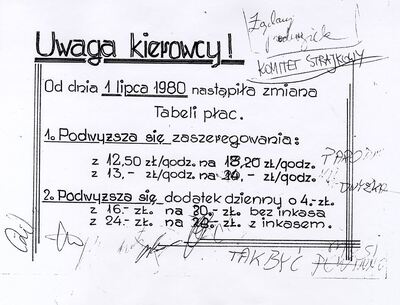 Żądamy
podwyżek
KOMITET STRAJKOWY
Uwaga kierowcy!
Od dnia 1 lipca 1980 nastąpiła zmiana
Tabeli płac.
1. Podwyższa się zaszeregowania:
z 12,50 zł/godz. na 18,20 zł/godz.
z 13,- zł/godz. na zł/godz.
2. Podwyższa się dodatek dzienny o 4.- zł.
z 16.- zł. na 20.- zł. bez inkasa
z 24.- zł. na zł. z inkasem.
TAK BYĆ POWINNO